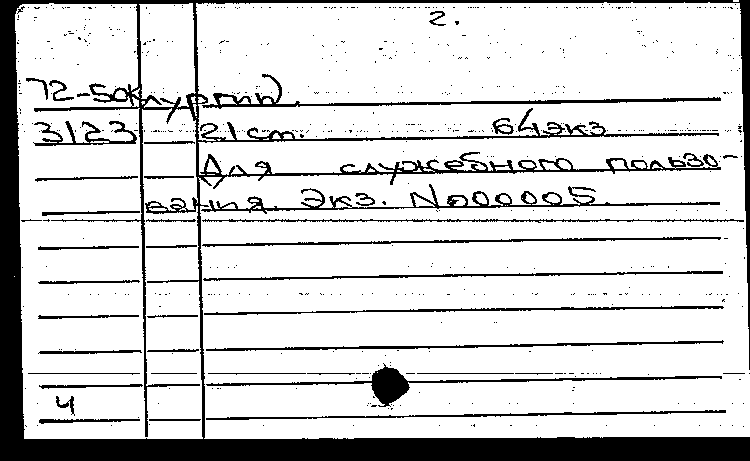 2.
72-50к лургии).
3123 21 cm. 64 экз
Для служебного пользо-
вания. Экз. №00005.
4